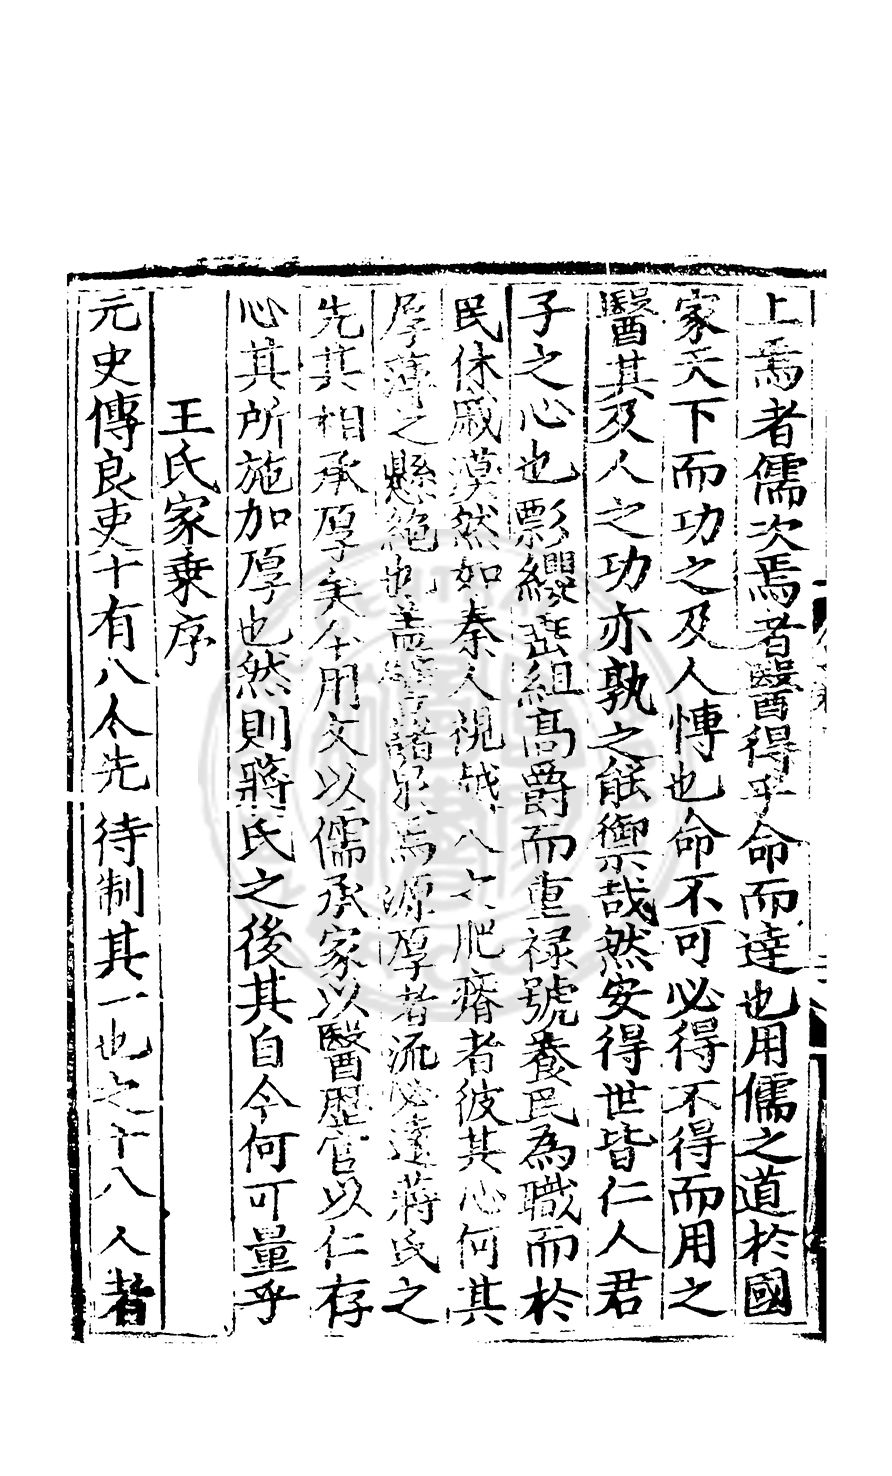 上焉者儒次焉者醫得乎命而達也用儒之道於國
家天下而功之及人慱也命不可必得不得而用之
醫其及人之功亦孰之能禦哉然安得世皆仁人君
子之心也彯纓蜚組高爵而重祿號養民為職而於
民休戚漠然如秦人視越人之肥瘠者彼其心何其
厚薄之懸絕也盖嘗諸源厚者流必達蔣氏之
先其相承厚矣用文以儒承家以醫歷官以仁存
心其所施加厚也然則蔣氏之後其自今何可量乎
王氏家乗序
元史傳良吏十有八人先待制其一也之十八人者